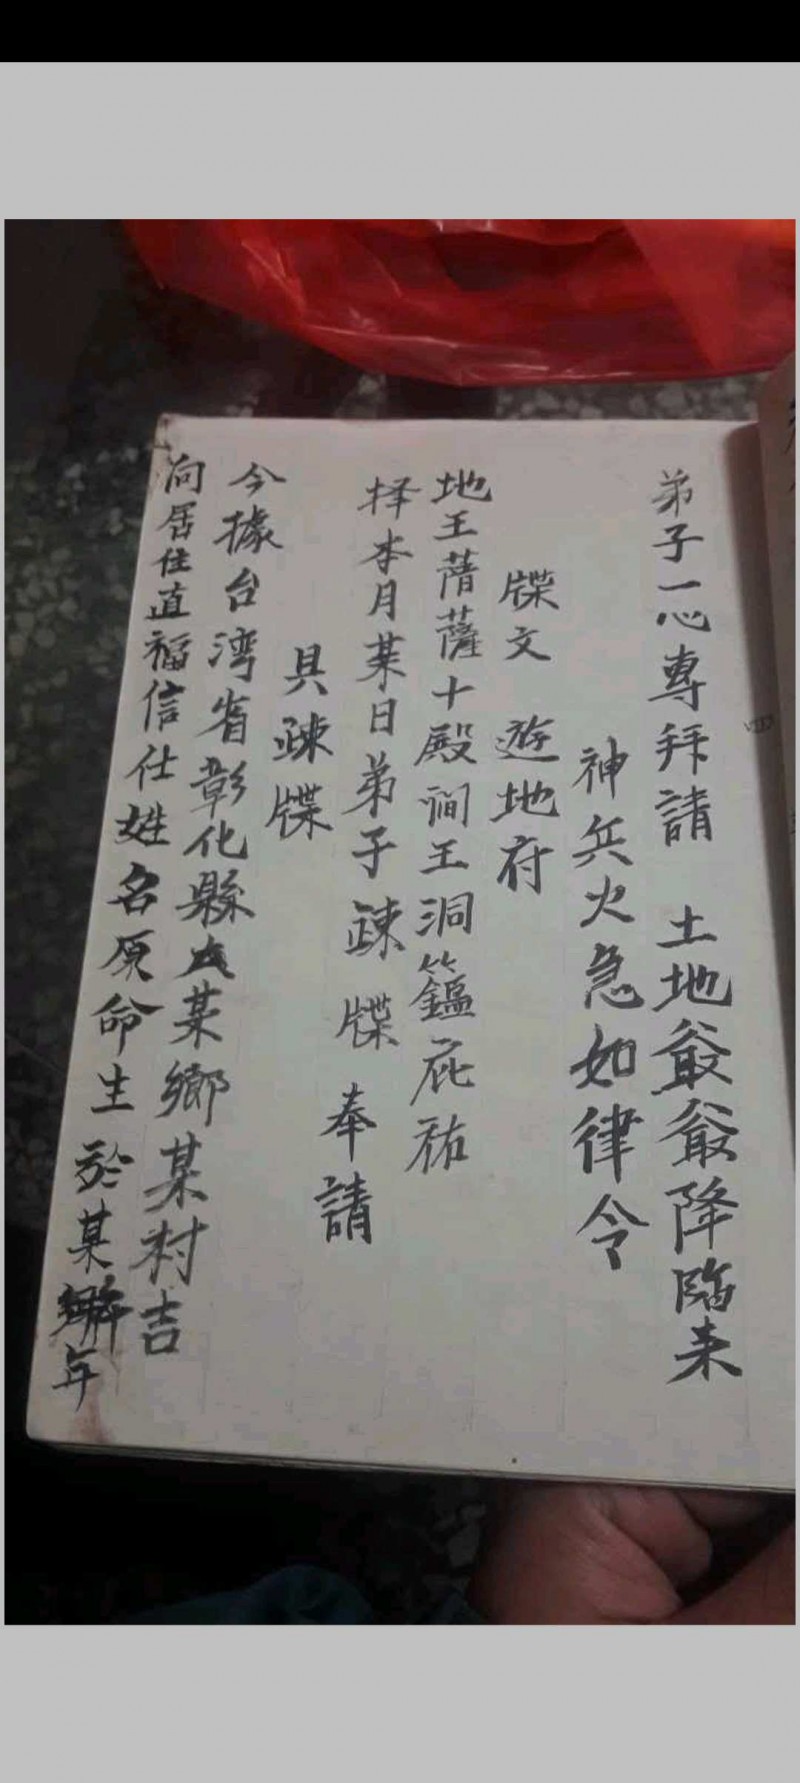 弟子一心專拜請　土地爺爺降臨來
神兵火急如律令
牒文　遊地府
地王菩薩十殿閻王洞鑑庇祐
择本月某日弟子疎牒奉請
具疎牒
今據台湾省彰化縣某鄉某村吉
向居住直福信仕姓名原命生於某年
四